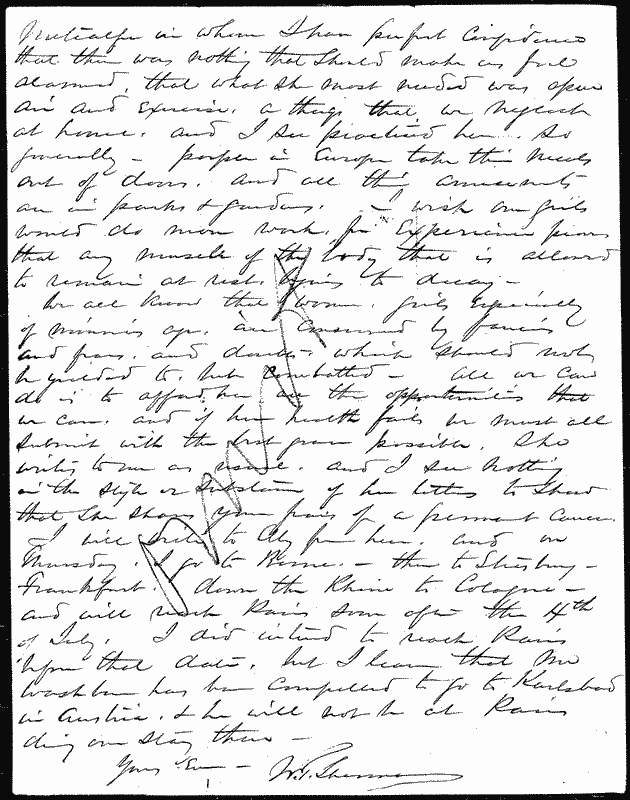 Metcalfe in whom I have perfect confidence
that there was nothing that should make us feel
alarmed, that what she most needed was open
air and exercise. a thing that we neglect
at home. and I see practiced here. so
generally - people in Europe take their meals
out of doors. and all their amusements
are in parks & gardens. I wish our girls
would do more work, for Experience proves
that any muscle of the body that is allowed
to remain at rest. begins to decay -
We all know that women. girls Especially
of Minnies age. are consumed by fancies
and fears. and doubts which should not
be yielded to. but combatted - all we can
do is to afford her all the opportunities that
we can. and if her health fails we must all
submit with the best grace possible. She
writes to me as usual. and I see nothing
in the style or substance of her letters to show
that she shares your fears of a permanent
I will write to Aly from here. and on
Thursday. I go to Berne. - then to Strasburg -
Frankfurt. down the Rhine to Cologne -
and will reach Paris soon after the 4th
of July. I did intend to reach Paris
upon that date. but I learn that Mr
Washburn has been compelled to go to Karlsbad
in Austria. & he will not be at Paris
during our stay there -
Yours Ever - W. T. Sherman